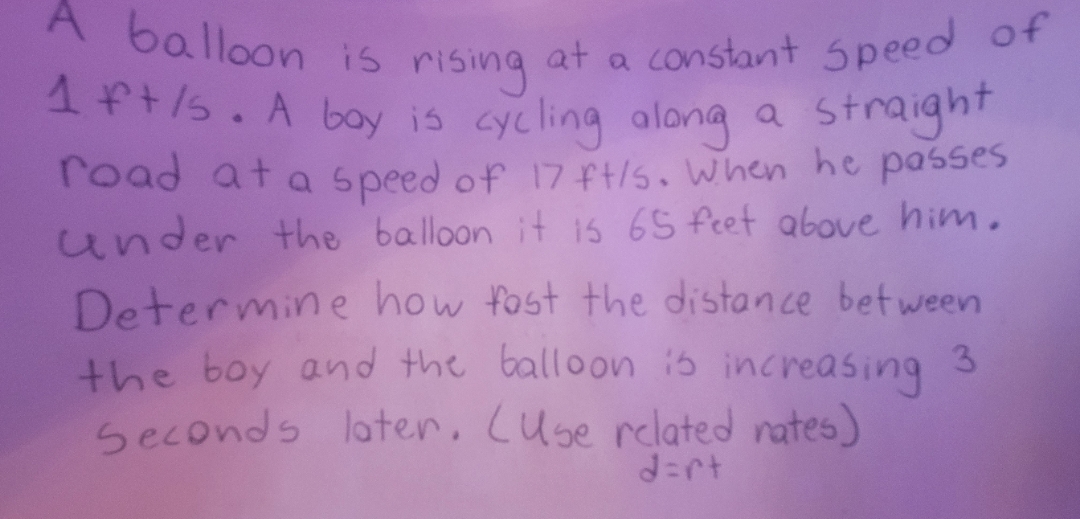 A balloon is rising at a constant speed of
1 ft/s. A boy is cycling along a straight
road at a speed of 17 ft/s. When he passes
under the balloon it is 65 feet above him.
Determine how fast the distance between
the boy and the balloon is increasing 3
seconds later. (Use related rates)
d=rt